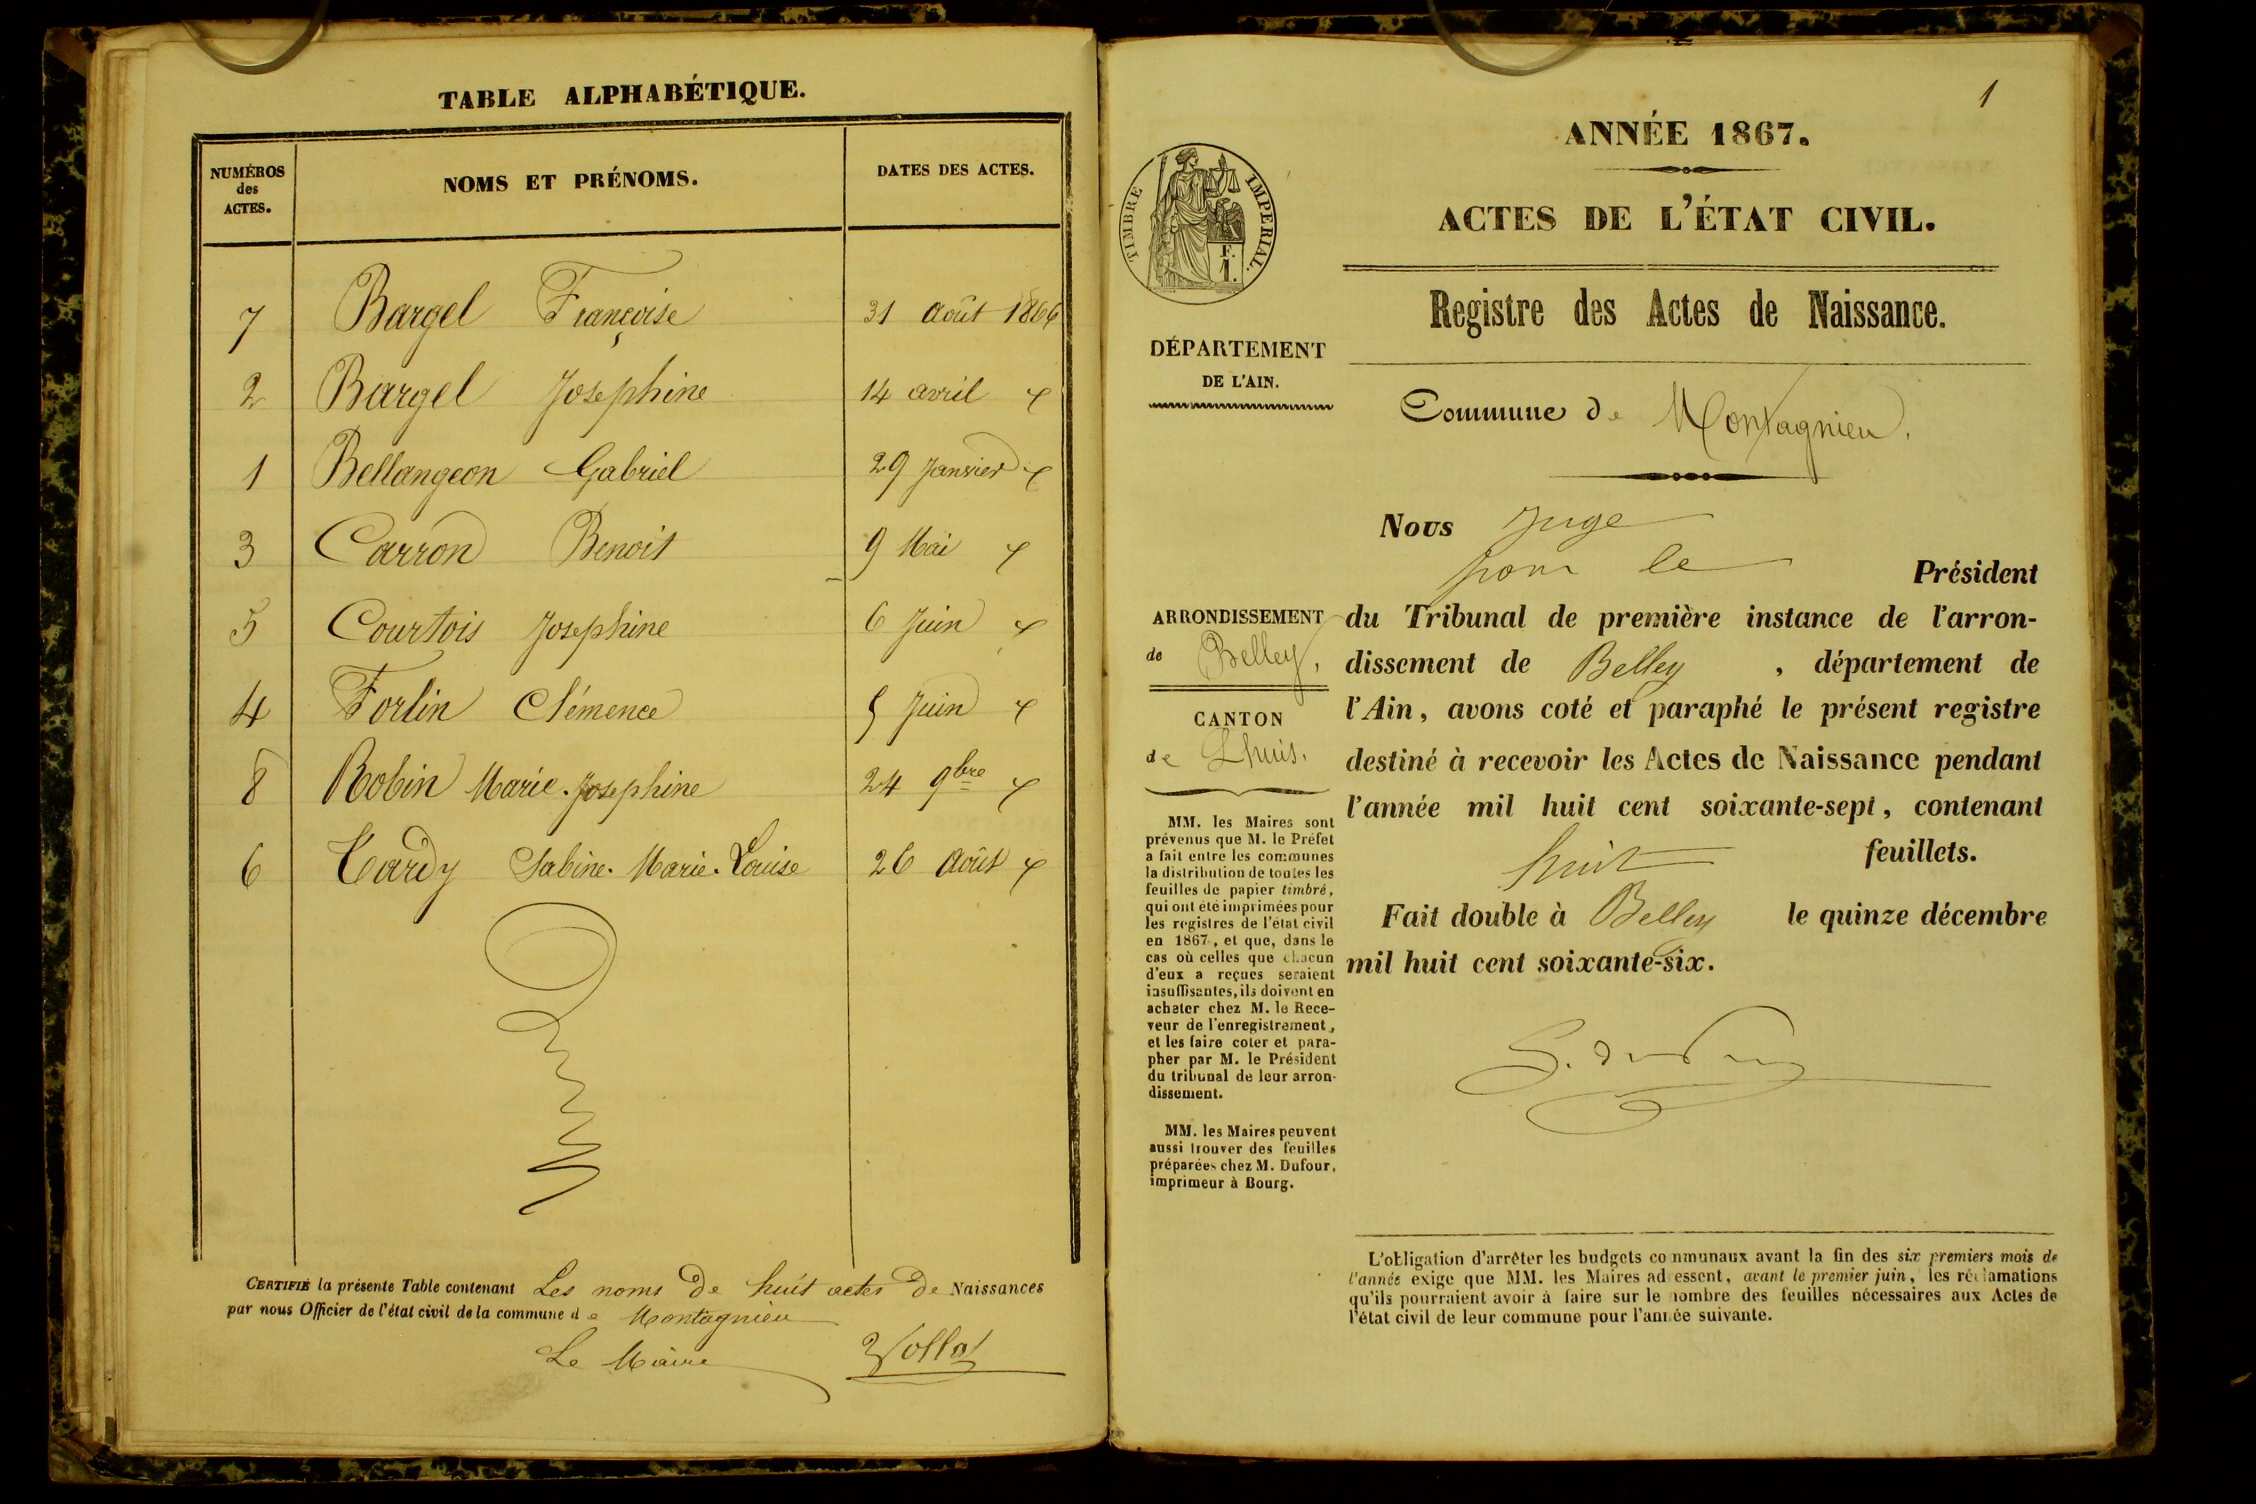 TABLE ALPHABÉTIQUE.
NUMÉROS des ACTES.
NOMS ET PRÉNOMS.
DATES DES ACTES.
7 Bargel Françoise 31 août 1866
2 Bargel Josephine 14 avril
1 Bellangeon Gabriel 29 Janvier
3 Carron Benoit 9 Mai
5 Courtois Josephine 6 Juin
4 Forlin Clémence 5 Juin
8 Robin Marie-Josephine 24 9bre
6 Tardy Sabine-Marie-Louise 26 août
CERTIFIÉ la présente Table contenant Les noms de huit actes de Naissances
par nous Officier de l'état civil de la commune de Montagnieu
Le Maire
1
ANNÉE 1867.
ACTES DE L'ÉTAT CIVIL.
Registre des Actes de Naissance.
TIMBRE IMPERIAL.
F. 1.
DÉPARTEMENT
DE L'AIN.
Commune de Montagnieu.
Nous Juge
pour le Président
ARRONDISSEMENT
de Belley,
CANTON
de Lhuis.
du Tribunal de première instance de l'arron-
dissement de Belley, département de
l'Ain, avons coté et paraphé le présent registre
destiné à recevoir les Actes de Naissance pendant
l'année mil huit cent soixante-sept, contenant
huit feuillets.
Fait double à Belley le quinze décembre
mil huit cent soixante-six.
MM. les Maires sont
prévenus que M. le Préfet
a fait entre les communes
la distribution de toutes les
feuilles de papier timbré,
qui ont été imprimées pour
les registres de l'état civil
en 1867, et que, dans le
cas où celles que chacun
d'eux a reçues seraient
insuffisantes, ils doivent en
acheter chez M. le Rece-
veur de l'enregistrement,
et les faire coter et para-
pher par M. le Président
du tribunal de leur arron-
dissement.
MM. les Maires peuvent
aussi trouver des feuilles
préparées chez M. Dufour,
imprimeur à Bourg.
L'obligation d'arrêter les budgets communaux avant la fin des six premiers mois de
l'année exige que MM. les Maires adressent, avant le premier juin, les réclamations
qu'ils pourraient avoir à faire sur le nombre des feuilles nécessaires aux Actes de
l'état civil de leur commune pour l'année suivante.